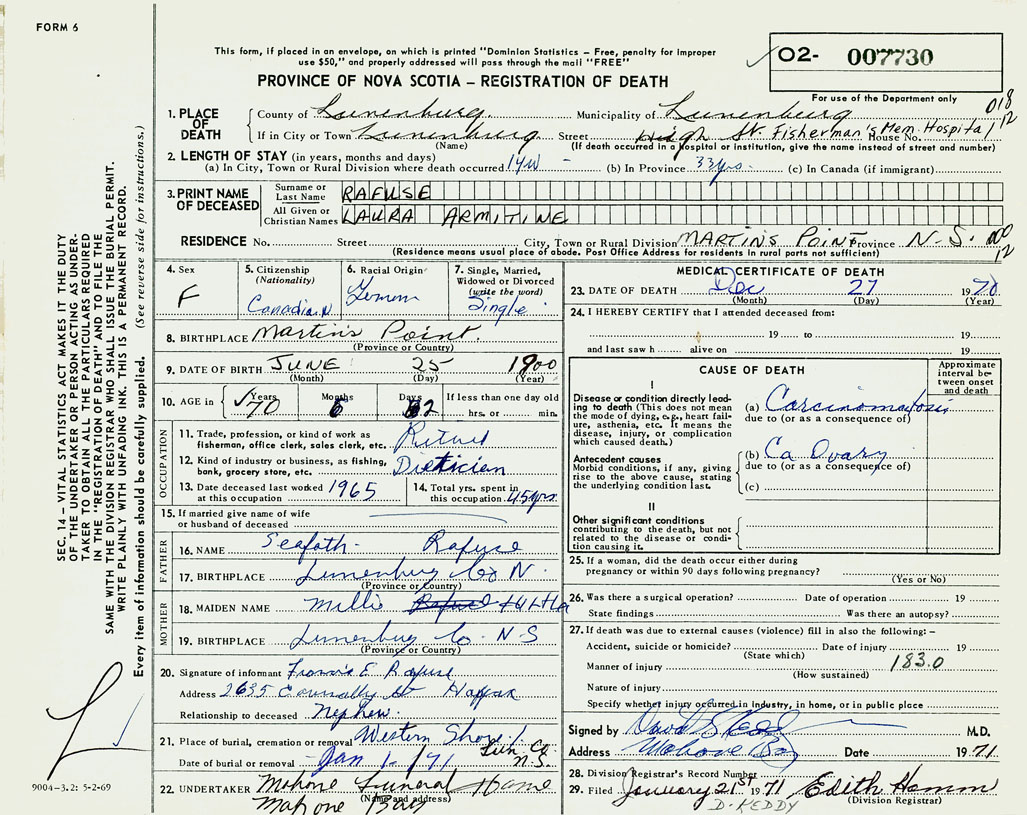 FORM 6
This form, if placed in an envelope, on which is printed "Dominion Statistics – Free, penalty for improper
use $50," and properly addressed will pass through the mail "FREE"
O2- 007730
PROVINCE OF NOVA SCOTIA – REGISTRATION OF DEATH
For use of the Department only
018
12
1. PLACE OF DEATH
County of Lunenburg Municipality of Lunenburg
If in City or Town Lunenburg Street High St. Fisherman's Mem. Hospital House No.
(Name) (If death occurred in a hospital or institution, give the name instead of street and number)
2. LENGTH OF STAY (in years, months and days)
(a) In City, Town or Rural Division where death occurred (b) In Province 33yrs. (c) In Canada (if immigrant)
3. PRINT NAME OF DECEASED
Surname or Last Name RAFUSE
All Given or Christian Names LAURA ARMITINE
RESIDENCE No. Street City, Town or Rural Division MARTINS POINT Province N.S.
12
(Residence means usual place of abode. Post Office Address for residents in rural parts not sufficient)
4. Sex
F
5. Citizenship
(Nationality)
Canadian
6. Racial Origin
German
7. Single, Married,
Widowed or Divorced
(write the word)
Single
8. BIRTHPLACE Martins Point.
(Province or Country)
9. DATE OF BIRTH JUNE 25 1900
(Month) (Day) (Year)
10. AGE in Years 70 Months 6 Days 2 If less than one day old
hrs. or min.
OCCUPATION
11. Trade, profession, or kind of work as
fisherman, office clerk, sales clerk, etc. Retired
12. Kind of industry or business, as fishing,
bank, grocery store, etc. Dietician
13. Date deceased last worked
at this occupation 1965
14. Total yrs. spent in
this occupation 45 yrs.
15. If married give name of wife
or husband of deceased
FATHER
16. NAME Seafoth Rafuse
17. BIRTHPLACE Lunenburg Co N
(Province or Country)
MOTHER
18. MAIDEN NAME Millie Rafuse
19. BIRTHPLACE Lunenburg Co. N S
(Province or Country)
20. Signature of informant Francis E Rafuse
Address 2635 Connally St Halifax
Relationship to deceased Nephew.
21. Place of burial, cremation or removal Western Shore
Lun. Co. N.S.
Date of burial or removal Jan 1 - /71
22. UNDERTAKER Mahone Funeral Home
(Name and address)
Mahone Bay
MEDICAL CERTIFICATE OF DEATH
23. DATE OF DEATH Dec 27 1970
(Month) (Day) (Year)
24. I HEREBY CERTIFY that I attended deceased from:
19 to 19
and last saw h alive on 19
CAUSE OF DEATH
Approximate
interval be-
tween onset
and death
I
Disease or condition directly lead-
ing to death (This does not mean
the mode of dying, e.g., heart fail-
ure, asthenia, etc. It means the
disease, injury, or complication
which caused death.)
(a) Carcinomatosis
due to (or as a consequence of)
Antecedent causes
Morbid conditions, if any, giving
rise to the above cause, stating
the underlying condition last.
(b) Ca Ovary
due to (or as a consequence of)
(c)
II
Other significant conditions
contributing to the death, but not
related to the disease or condi-
tion causing it.
25. If a woman, did the death occur either during
pregnancy or within 90 days following pregnancy?
(Yes or No)
26. Was there a surgical operation? Date of operation 19
State findings Was there an autopsy?
27. If death was due to external causes (violence) fill in also the following: –
Accident, suicide or homicide? Date of injury 19
(State which)
183.0
Manner of injury
(How sustained)
Nature of injury
Specify whether injury occurred in industry, in home, or in public place
Signed by M.D.
Address Mahone Bay Date 1971
28. Division Registrar's Record Number
29. Filed January 21st 1971 Edith Hamm
(Division Registrar)
D. KEDDY
SEC. 14 – VITAL STATISTICS ACT MAKES IT THE DUTY
OF THE UNDERTAKER OR PERSON ACTING AS UNDER-
TAKER TO OBTAIN ALL THE PARTICULARS REQUIRED
IN THE "REGISTRATION OF DEATH" AND TO FILE THE
SAME WITH THE DIVISION REGISTRAR WHO SHALL ISSUE THE BURIAL PERMIT.
WRITE PLAINLY WITH UNFADING INK. THIS IS A PERMANENT RECORD.
Every item of information should be carefully supplied. (See reverse side for instructions.)
9004-3.2: 5-2-69